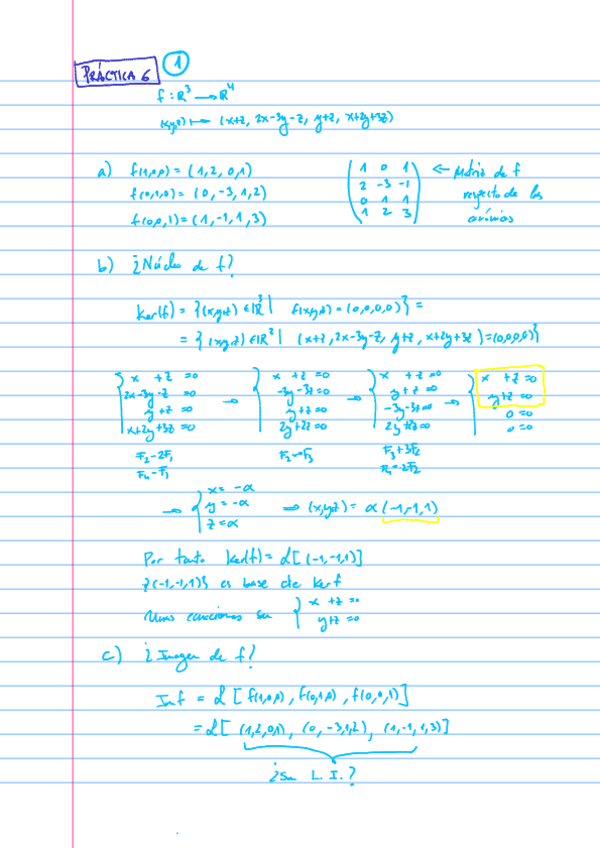 PRÁCTICA 6 1
f: R³ → R⁴
(x,y,z) ↦ (x+z, 2x-3y-z, y+z, x+2y+3z)
a) f(1,0,0) = (1,2,0,1)
f(0,1,0) = (0,-3,1,2)
f(0,0,1) = (1,-1,1,3)
( 1 0 1
2 -3 -1
0 1 1
1 2 3 )
← Matriz de f
respecto de las
canónicas
b) ¿Núcleo de f?
Ker(f) = {(x,y,z) ∈ R³ | f(x,y,z) = (0,0,0,0)} =
= {(x,y,z) ∈ R³ | (x+z, 2x-3y-z, y+z, x+2y+3z) = (0,0,0,0)}
{ x +z =0
2x-3y-z =0
y+z =0
x+2y+3z =0
F₂-2F₁
F₄-F₁
→ { x +z =0
-3y-3z=0
y+z=0
2y+2z=0
F₂↔F₃
→ { x +z =0
y+z =0
-3y-3z=0
2y+2z=0
F₃+3F₂
F₄-2F₂
→ { x +z =0
y+z =0
0=0
0=0
→ { x = -α
y = -α
z = α
→ (x,y,z) = α(-1,-1,1)
Por tanto Ker(f) = L[(-1,-1,1)]
{(-1,-1,1)} es base de Kerf
Unas ecuaciones son { x +z =0
y+z =0
c) ¿Imagen de f?
Imf = L[f(1,0,0), f(0,1,0), f(0,0,1)]
= L[(1,2,0,1), (0,-3,1,2), (1,-1,1,3)]
¿Son L.I.?